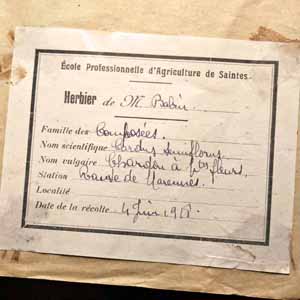 École Professionnelle d'Agriculture de Saintes
Herbier de M. Babin
Famille des Composées.
Nom scientifique Carduus
Nom vulgaire Chardon à pts fleurs.
Station de Marennes.
Localité
Date de la récolte 4 Juin